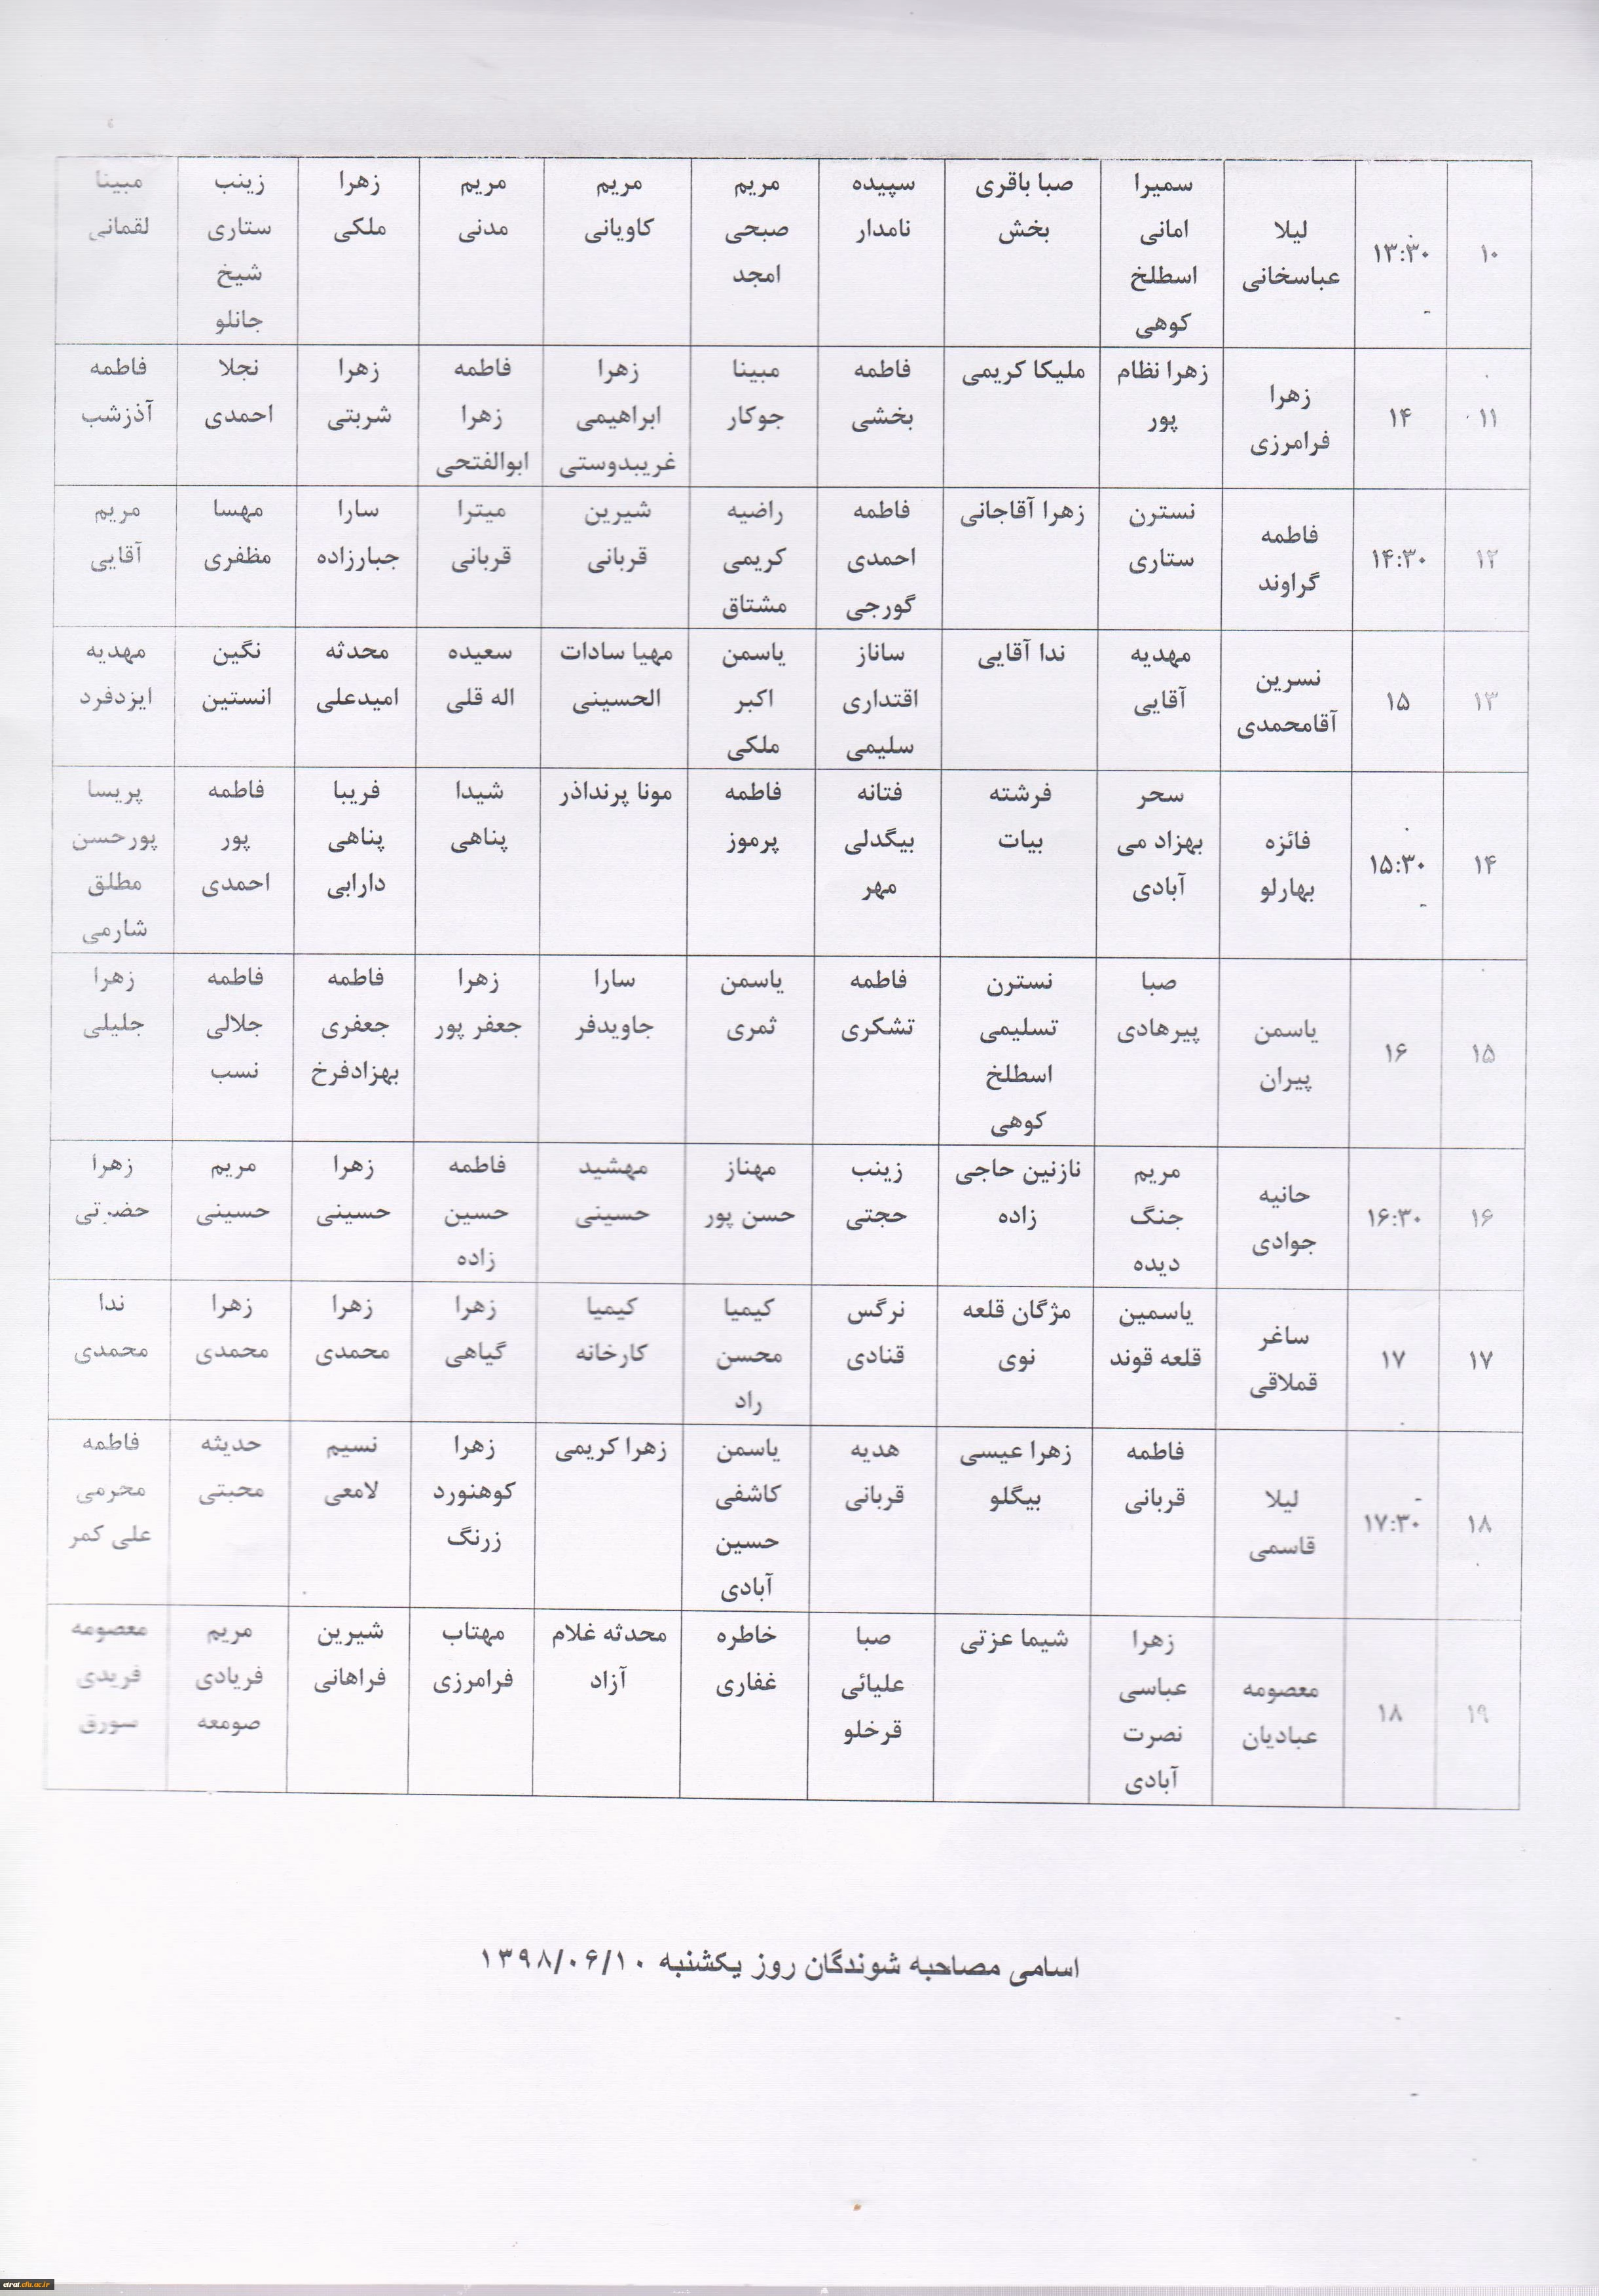 ۱۰ ۱۳:۳۰ لیلا عباسخانی سمیرا امانی اسطلخ کوهی صبا باقری بخش سپیده نامدار مریم صبحی امجد مریم کاویانی مریم مدنی زهرا ملکی زینب ستاری شیخ جانلو مبینا لقمانی
۱۱ ۱۴ زهرا فرامرزی زهرا نظام پور ملیکا کریمی فاطمه بخشی مبینا جوکار زهرا ابراهیمی غریبدوستی فاطمه زهرا ابوالفتحی زهرا شربتی نجلا احمدی فاطمه آذرشب
۱۲ ۱۴:۳۰ فاطمه گراوند نسترن ستاری زهرا آقاجانی فاطمه احمدی گورجی راضیه کریمی مشتاق شیرین قربانی میترا قربانی سارا جبارزاده مهسا مظفری مریم آقایی
۱۳ ۱۵ نسرین آقامحمدی مهدیه آقایی ندا آقایی ساناز اقتداری سلیمی یاسمن اکبر ملکی مهیا سادات الحسینی سعیده اله قلی محدثه امیدعلی نگین انستین مهدیه ایزدفرد
۱۴ ۱۵:۳۰ فائزه بهارلو سحر بهزاد می آبادی فرشته بیات فتانه بیگدلی مهر فاطمه پرموز مونا پرنداذر شیدا پناهی فریبا پناهی دارابی فاطمه پور احمدی پریسا پورحسن مطلق شارمی
۱۵ ۱۶ یاسمن پیران صبا پیرهادی نسترن تسلیمی اسطلخ کوهی فاطمه تشکری یاسمن ثمری سارا جاویدفر زهرا جعفر پور فاطمه جعفری بهزادفرخ فاطمه جلالی نسب زهرا جلیلی
۱۶ ۱۶:۳۰ حانیه جوادی مریم جنگ دیده نازنین حاجی زاده زینب حجتی مهناز حسن پور مهشید حسینی فاطمه حسین زاده زهرا حسینی مریم حسینی زهرا حضرتی
۱۷ ۱۷ ساغر قملاقی یاسمین قلعه قوند مژگان قلعه نوی نرگس قنادی کیمیا محسن راد کیمیا کارخانه زهرا گیاهی زهرا محمدی زهرا محمدی ندا محمدی
۱۸ ۱۷:۳۰ لیلا قاسمی فاطمه قربانی زهرا عیسی بیگلو هدیه قربانی یاسمن کاشفی حسین آبادی زهرا کریمی زهرا کوهنورد زرنگ نسیم لامعی حدیثه محبتی فاطمه محرمی علی کمر
۱۹ ۱۸ معصومه عبادیان زهرا عباسی نصرت آبادی شیما عزتی صبا علیائی قرخلو خاطره غفاری محدثه غلام آزاد مهتاب فرامرزی شیرین فراهانی مریم فریادی صومعه معصومه فریدی سورق
اسامی مصاحبه شوندگان روز یکشنبه ۱۳۹۸/۰۶/۱۰
etraf.cfu.ac.ir